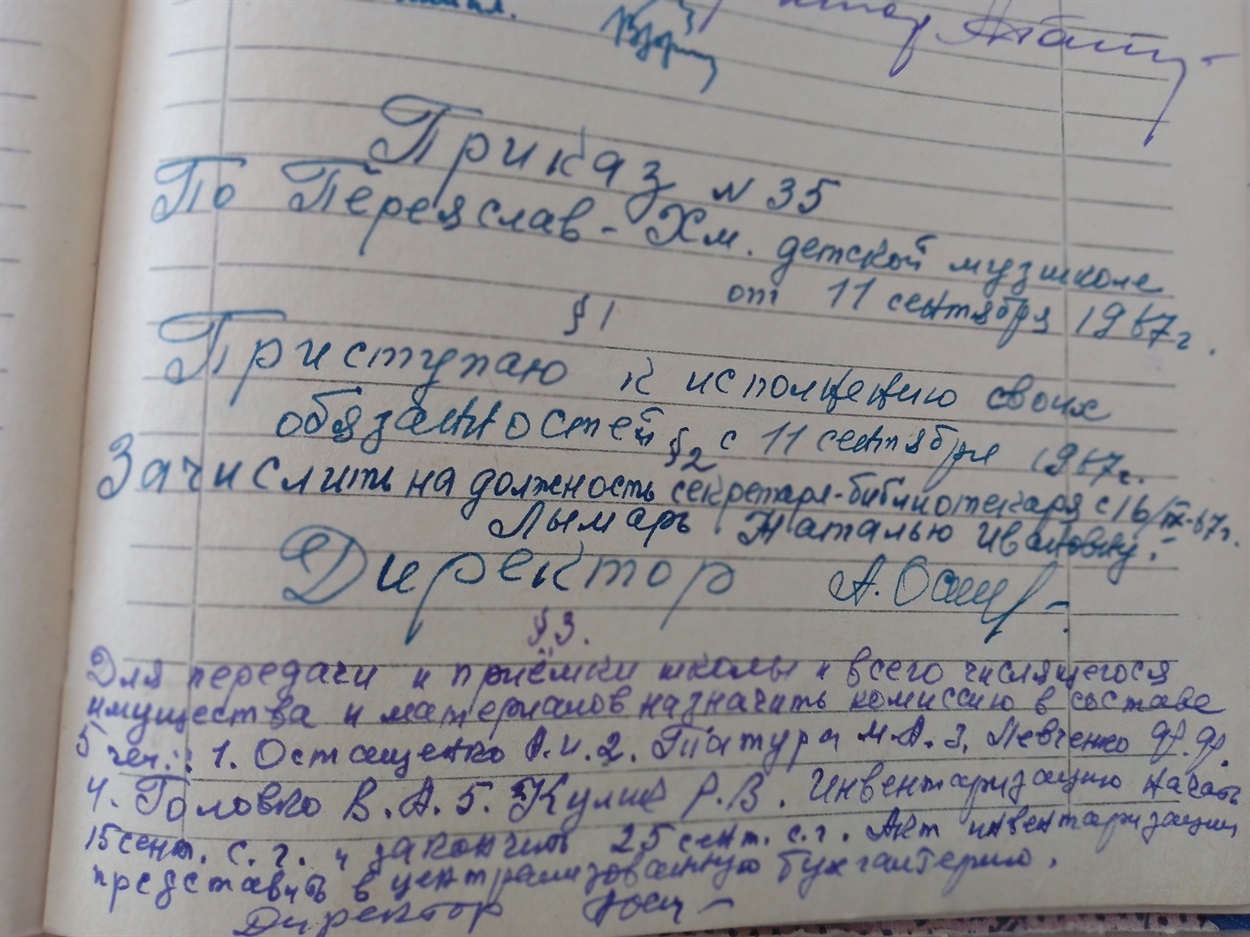 Приказ № 35
По Переяслав-Хм. детской музшколе
от 11 сентября 1967 г.
§ 1
Приступаю к исполнению своих
обязанностей с 11 сентября 1967г.
§2
Зачислить на должность секретаря-библиотекаря с 16/IX-67г.
Лымарь Наталью Ивановну.
Директор А.
§ 3.
Для передачи и приёмки школы и всего числящегося
имущества и материалов назначить комиссию в составе
5 чел.: 1. Остащенко А.И. 2. Татура М.А. 3. Левченко Ф.Ф.
4. Головко В.А. 5. Кулиш Р.В. Инвентаризацию начать
15 сент. с.г. и закончить 25 сент. с.г. Акт инвентаризации
представить в централизованную бухгалтерию.
Директор